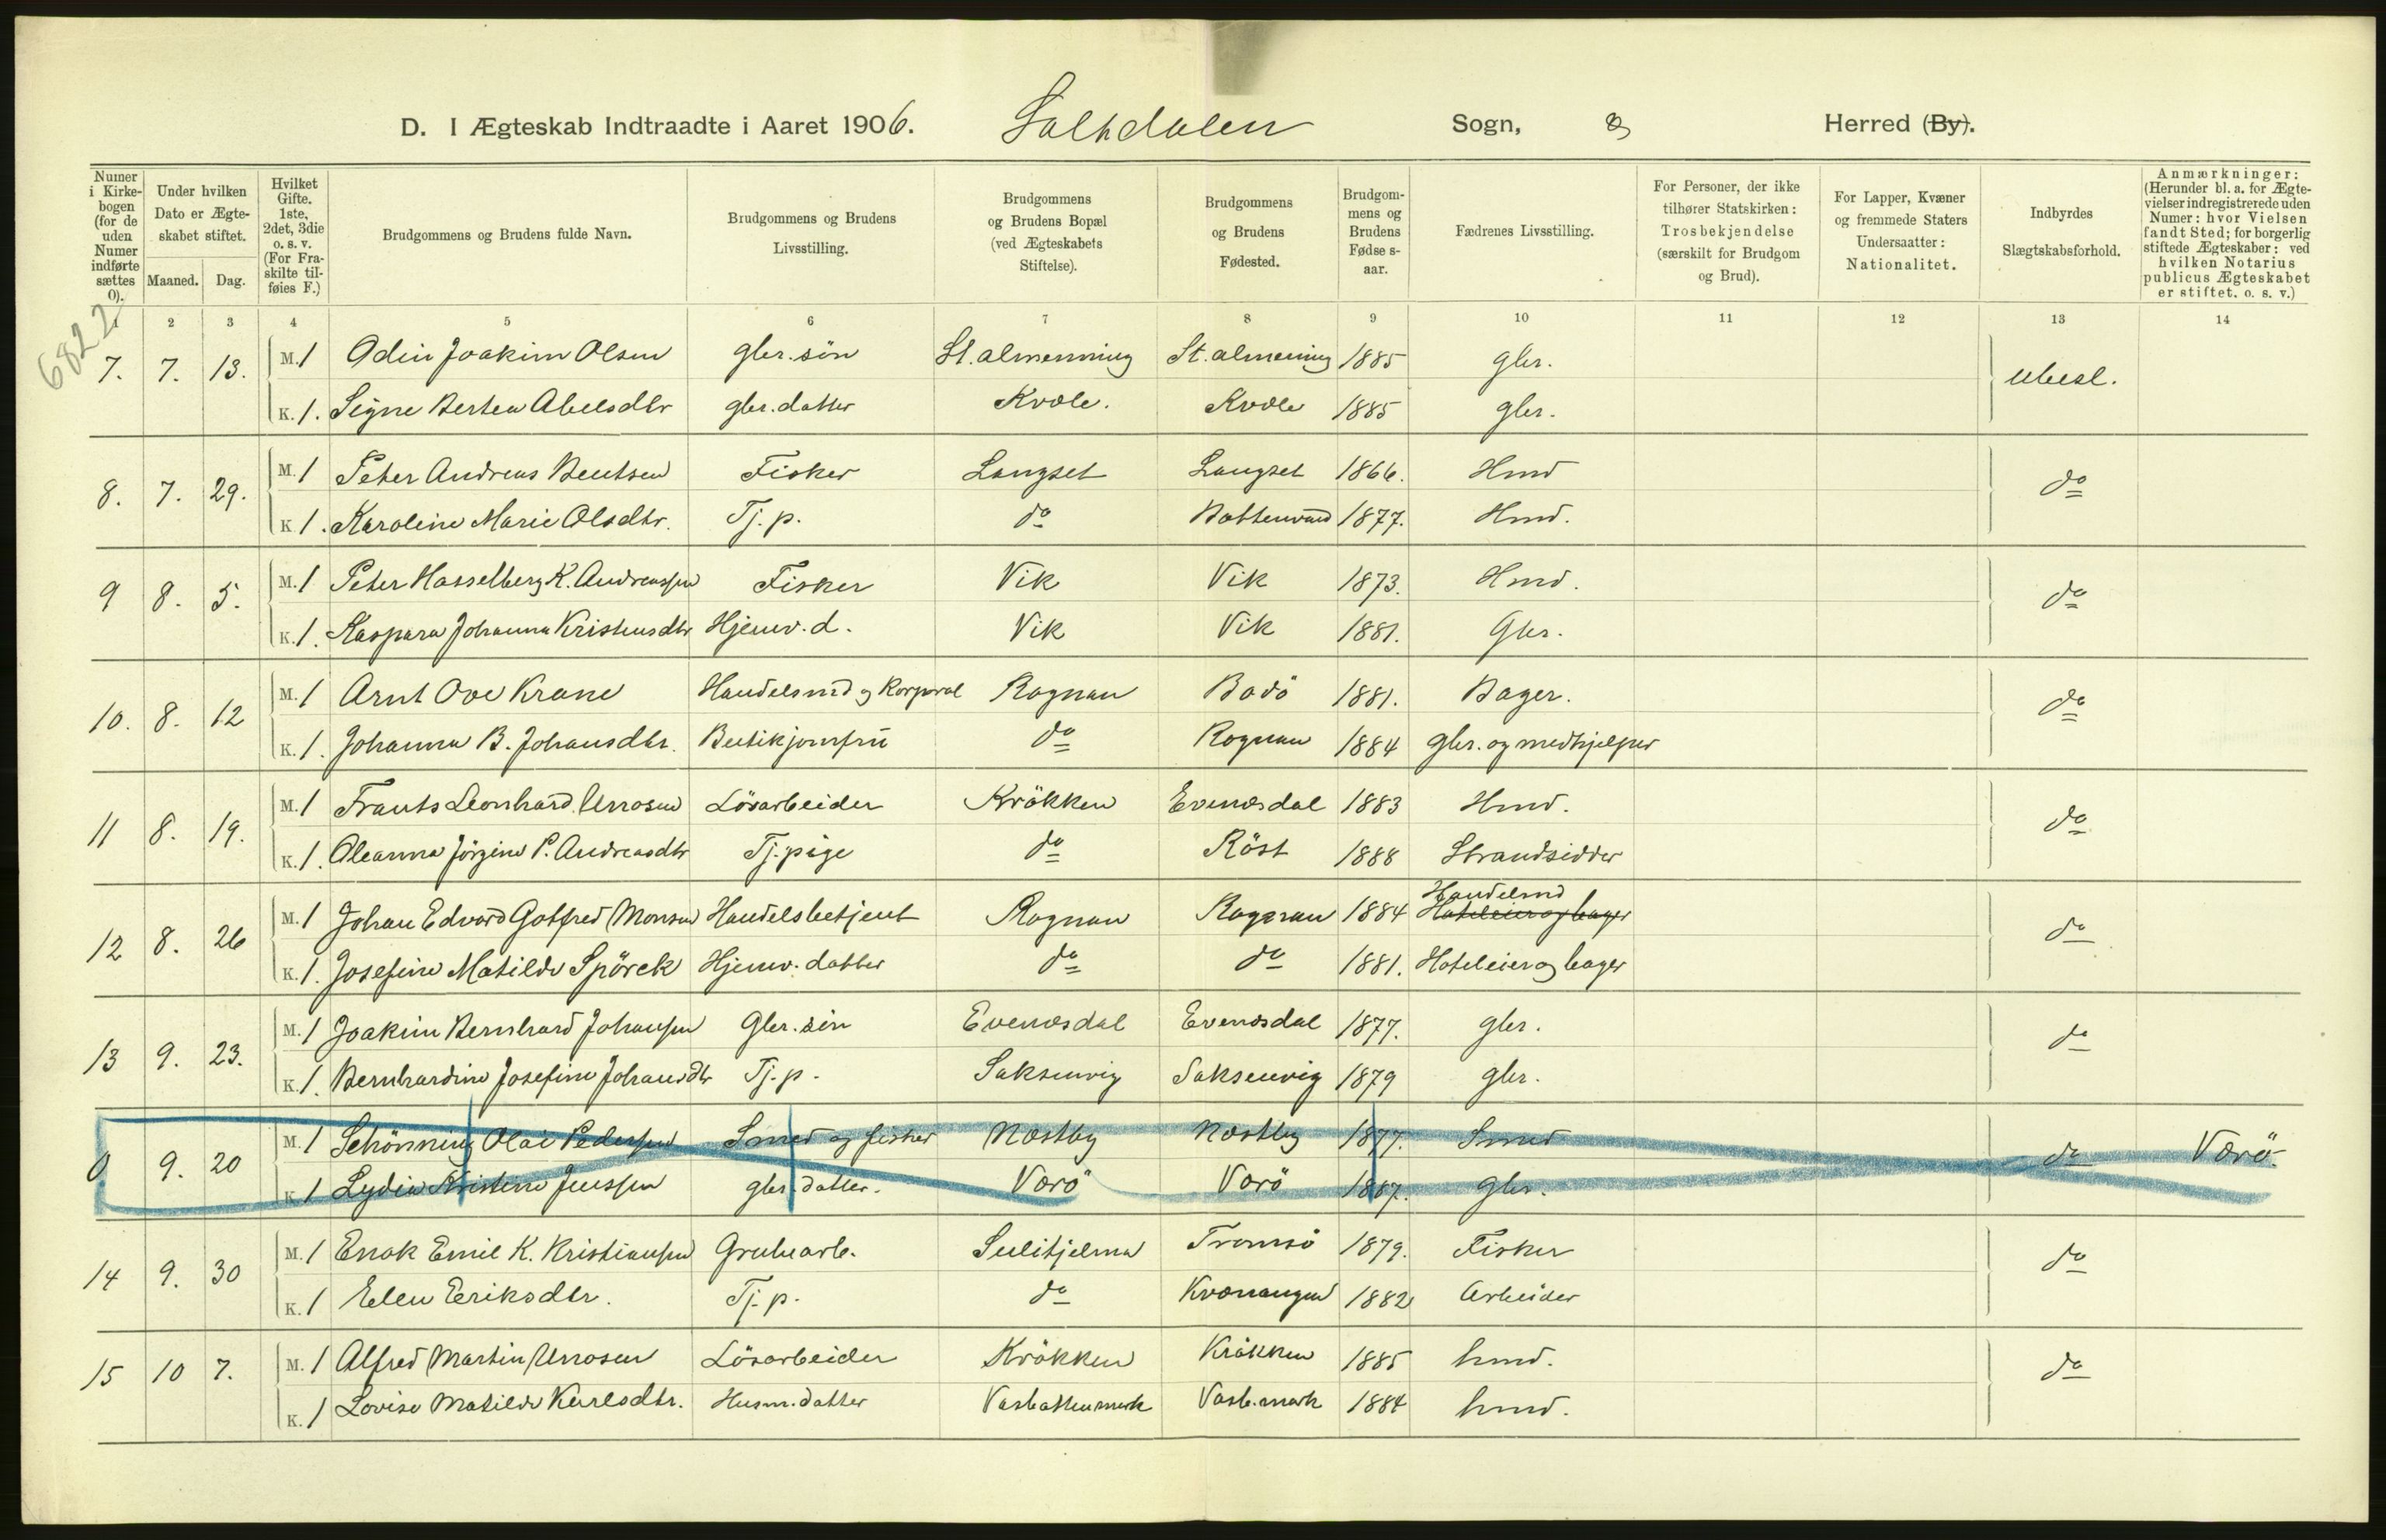 D. I Ægteskab Indtraadte i Aaret 1906. Saltdalen Sogn, Herred (By).
Numer i Kirkebogen (for de uden Numer indførte sættes 0).
Under hvilken Dato er Ægteskabet stiftet.
Maaned. Dag.
Hvilket Gifte. 1ste, 2det, 3die o. s. v. (For Fraskilte tilføies F.)
Brudgommens og Brudens fulde Navn.
Brudgommens og Brudens Livsstilling.
Brudgommens og Brudens Bopæl (ved Ægteskabets Stiftelse).
Brudgommens og Brudens Fødested.
Brudgommens og Brudens Fødselsaar.
Fædrenes Livsstilling.
For Personer, der ikke tilhører Statskirken: Trosbekjendelse (særskilt for Brudgom og Brud).
For Lapper, Kvæner og fremmede Staters Undersaatter: Nationalitet.
Indbyrdes Slægtskabsforhold.
Anmærkninger: (Herunder bl. a. for Ægtevielser indregistrerede uden Numer: hvor Vielsen fandt Sted; for borgerlig stiftede Ægteskaber: ved hvilken Notarius publicus Ægteskabet er stiftet. o. s. v.)
6822
1 2 3 4 5 6 7 8 9 10 11 12 13 14
7. 7. 13. M. 1 Odin Joakim Olsen gbr. søn St. almenning St. almening 1885 gbr. Ubesl.
K. 1. Signe Berten Abelsdtr gbr. datter Kvæle. Kvæle 1885 gbr.
8. 7. 29. M. 1 Peter Andreas Bentsen Fisker Langset Langset 1866. Hmd do
K 1. Karoline Marie Olsdtr. Tj. p. do Bottenvand 1877. Hmd.
9 8. 5. M. 1 Peter Hasselberg K. Andreassen Fisker Vik Vik 1873. Hmd. do
K. 1. Kaspara Johanna Kristensdtr Hjemv. d. Vik Vik 1881. Gbr.
10. 8. 12 M. 1 Arnt Ove Krane Handelsmd og Korporal Rognan Bodö 1881. Bager. do
K. 1. Johanna B. Johansdtr. Butikjomfru do Rognan 1884 gbr. og medhjelper
11 8. 19. M. 1 Frants Leonhard Urrosen Lösarbeider Kråkken Evenesdal 1883 Hmd. do
K. 1. Oleanna Jörgine P. Andreasdtr Tj. pige do Röst 1888 Strandsidder
12 8. 26 M. 1 Johan Edvard Gotfred Monsen Handelsbetjent Rognan Rognan 1884 Handelsmd Hoteleier og bager do
K. 1. Josefine Matilde Spörck Hjemv. datter do do 1881. Hoteleier og bager
13 9. 23. M. 1 Joakim Bernhard Johansen Gbr. sön Evenesdal Evenesdal 1877. gbr. do
K. 1. Bernhardine Josefine Johansdtr Tj. p. Saksenvig Saksenvig 1879 gbr.
0 9. 20 M. 1 Schönning Olai Pedersen Smed og fisker Næstby Næstby 1877. Smed do Værö.
K 1 Lydia Kristene Jenssen gbr. datter. Værö Værö 1887. Gbr.
14 9. 30 M. 1 Enok Emil K. Kristiansen Grubearb. Sulitjelma Tromsö 1879. Fisker do
K. 1 Elen Eriksdtr. Tj. p. do Kvænangen 1882 Arbeider
15 10 7. M. 1 Alfred Martin Urrosen Lösarbeider Kråkken Kråkken 1885 hmd. do
K. 1 Lovise Matilde Karlsdtr. Husm. datter Vasbottenmark Vasb.mark 1884 hmd.